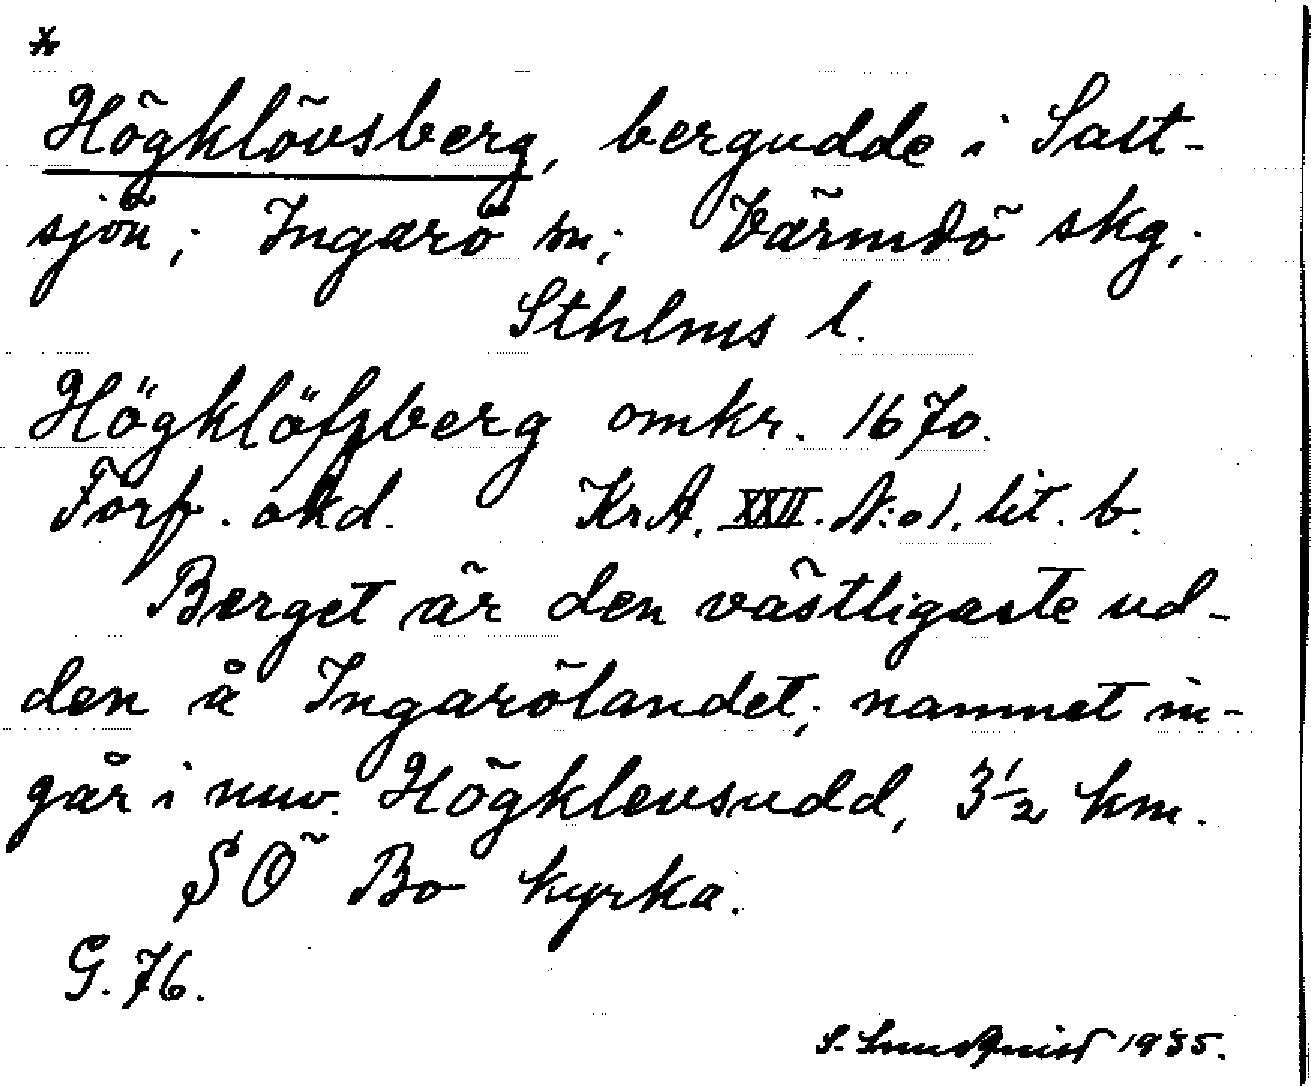 *
Högklövsberg, bergudde i Salt-
sjön; Ingarö sn; Värmdö skg;
Sthlms l.
Högklöfzberg omkr. 1670.
Förf. okd. KrA. XXII. N:o 1. lit. b.
Berget är den västligaste ud-
den å Ingarölandet; namnet in-
går i nuv. Högklevsudd, 3½ km.
SÖ Bo kyrka.
G. 76.
S. 1935.